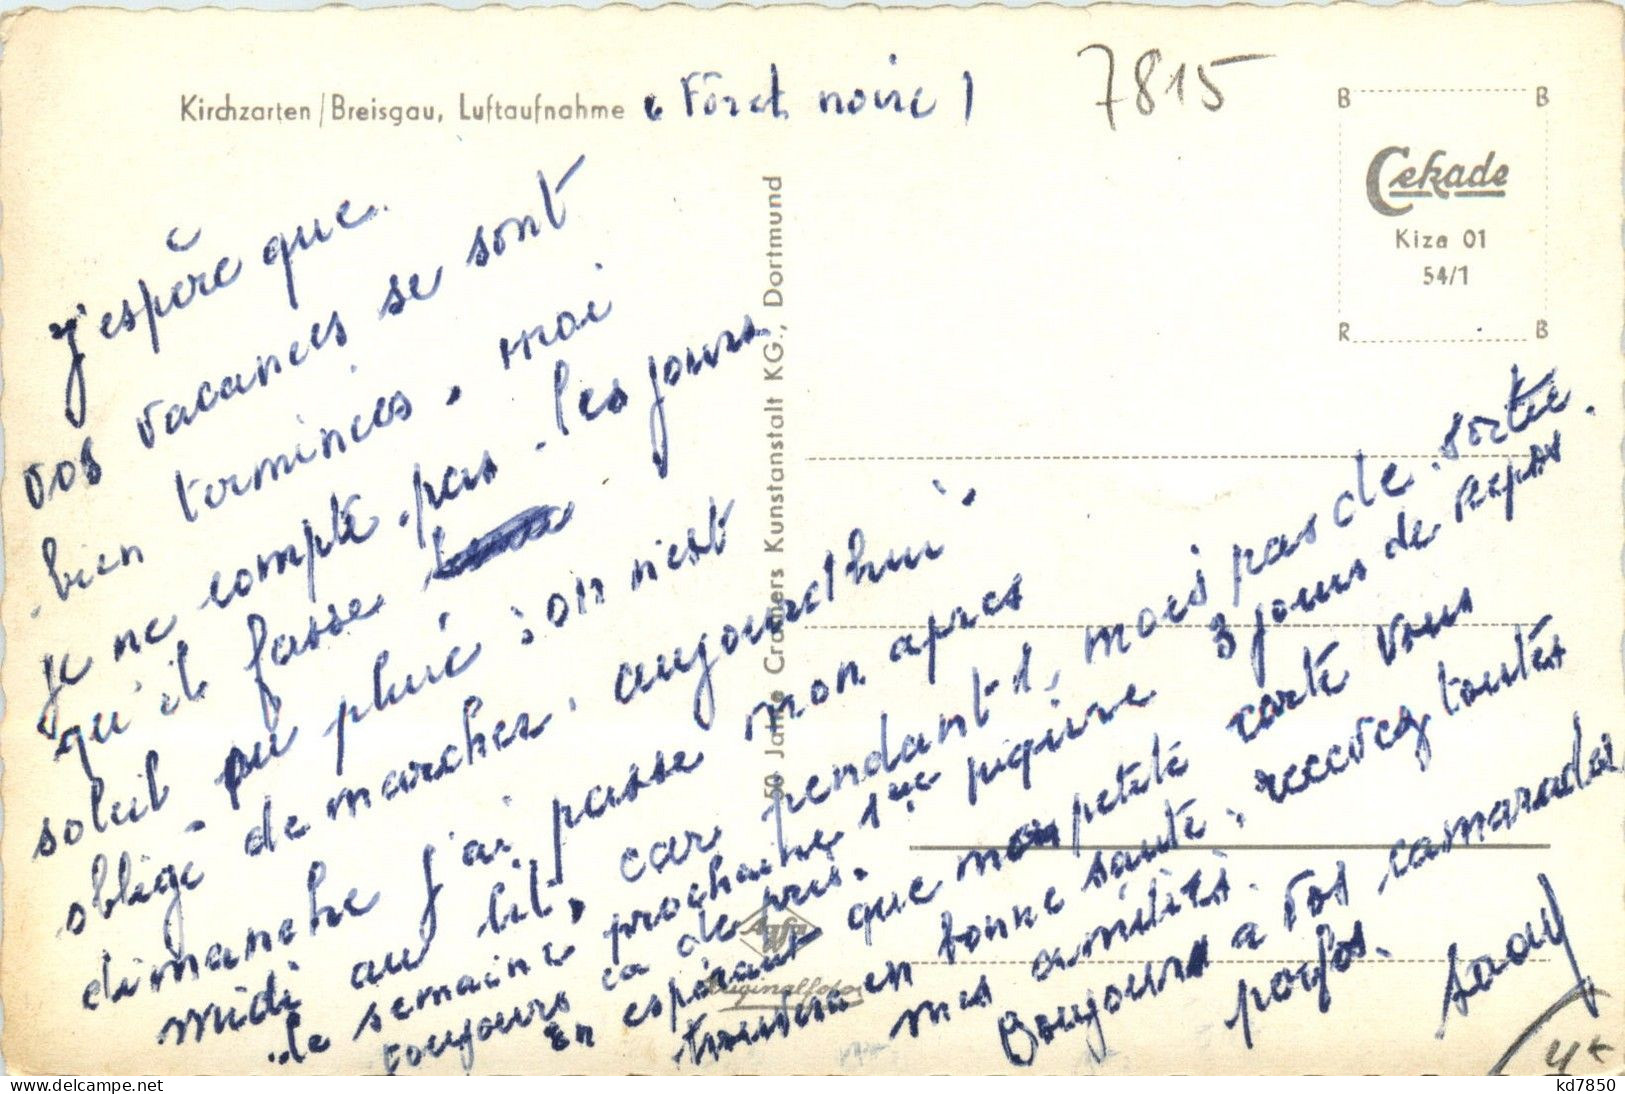 Kirchzarten/Breisgau, Luftaufnahme ( Fôret noire )
7815
B B
Cekade
Kiza 01
54/1
R B
50 Jahre Cramers Kunstanstalt KG., Dortmund
J'espère que
vos vacances se sont
bien terminées, moi
je ne compte pas les jours
qu'il fasse
soleil ou pluie on n'est
obligé de marcher, aujourd'hui
dimanche j'ai passé mon apres
midi au lit, car pendant 1 mois pas de sortie.
le semaine prochaine 1ère piqûre 3 jours de repos
toujours ca de pris.
En espérant que mon petite carte vous
trouvera en bonne santé, recevez toutes
mes amitiés.
Boujours a tos camarades
Agfa
Originalfoto
4€
kd7850
www.delcampe.net